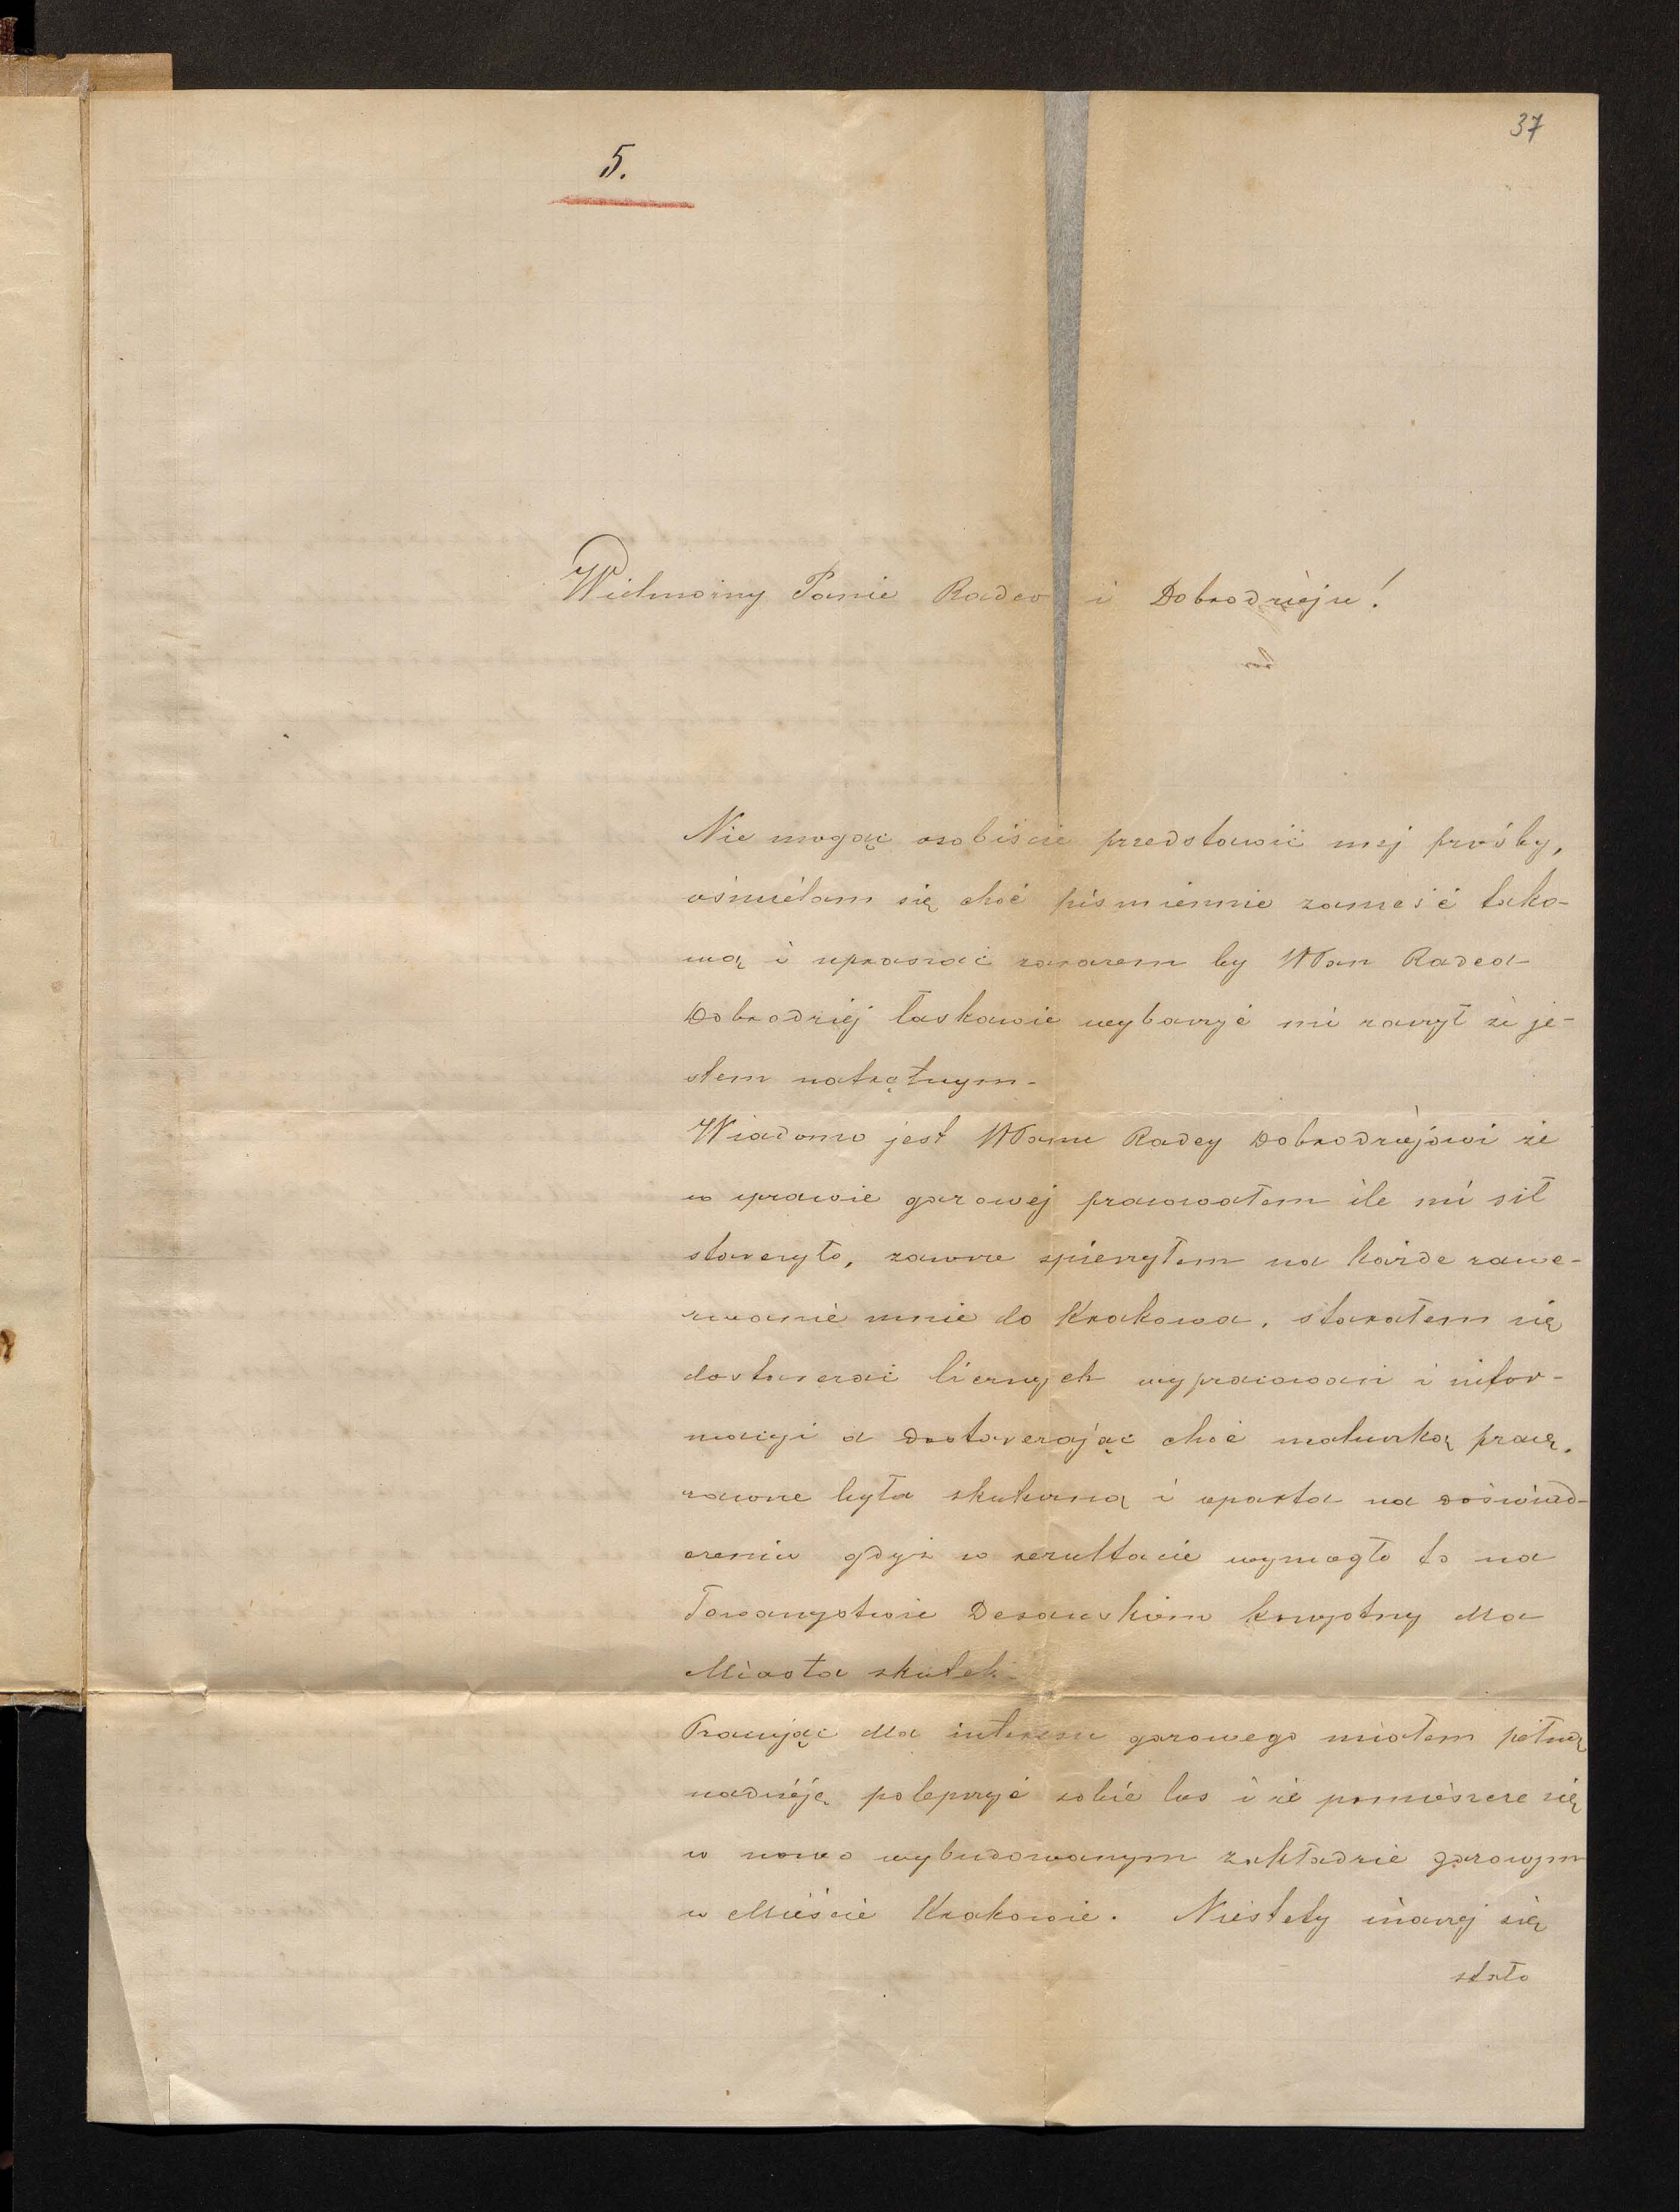 37
5.
Wielmożny Panie Radco i Dobrodzieju!
Nie mogąc osobiście przedstawić mej próśby,
ośmielam się choć piśmiennie zanieść tako-
wą i upraszać zarazem by WPan Radca
Dobrodziéj łaskawie wybaczyć mi raczył że je-
stem natrętnym.
Wiadomo jest WPanu Radcy Dobrodziejowi że
w sprawie gazowej pracowałem ile mi sił
starczyło, zawsze śpieszyłem na każde zawe-
zwanie mnie do Krakowa, starałem się
dostarczać licznych wypracowań i infor-
macyi a dostarczając choć maluczką pracę,
zawsze była skuteczną i oparta na doświad-
czeniu gdyż w rezultacie wymogło to na
Towarzystwie Desauskiem korzystny dla
Miasta skutek.
Pracując dla interesu gazowego miałem pełną
nadzieję polepszyć sobie los i że pomieszczę się
w nowo wybudowanym zakładzie gazowym
w Mieście Krakowie. Niestety inaczej się
stało